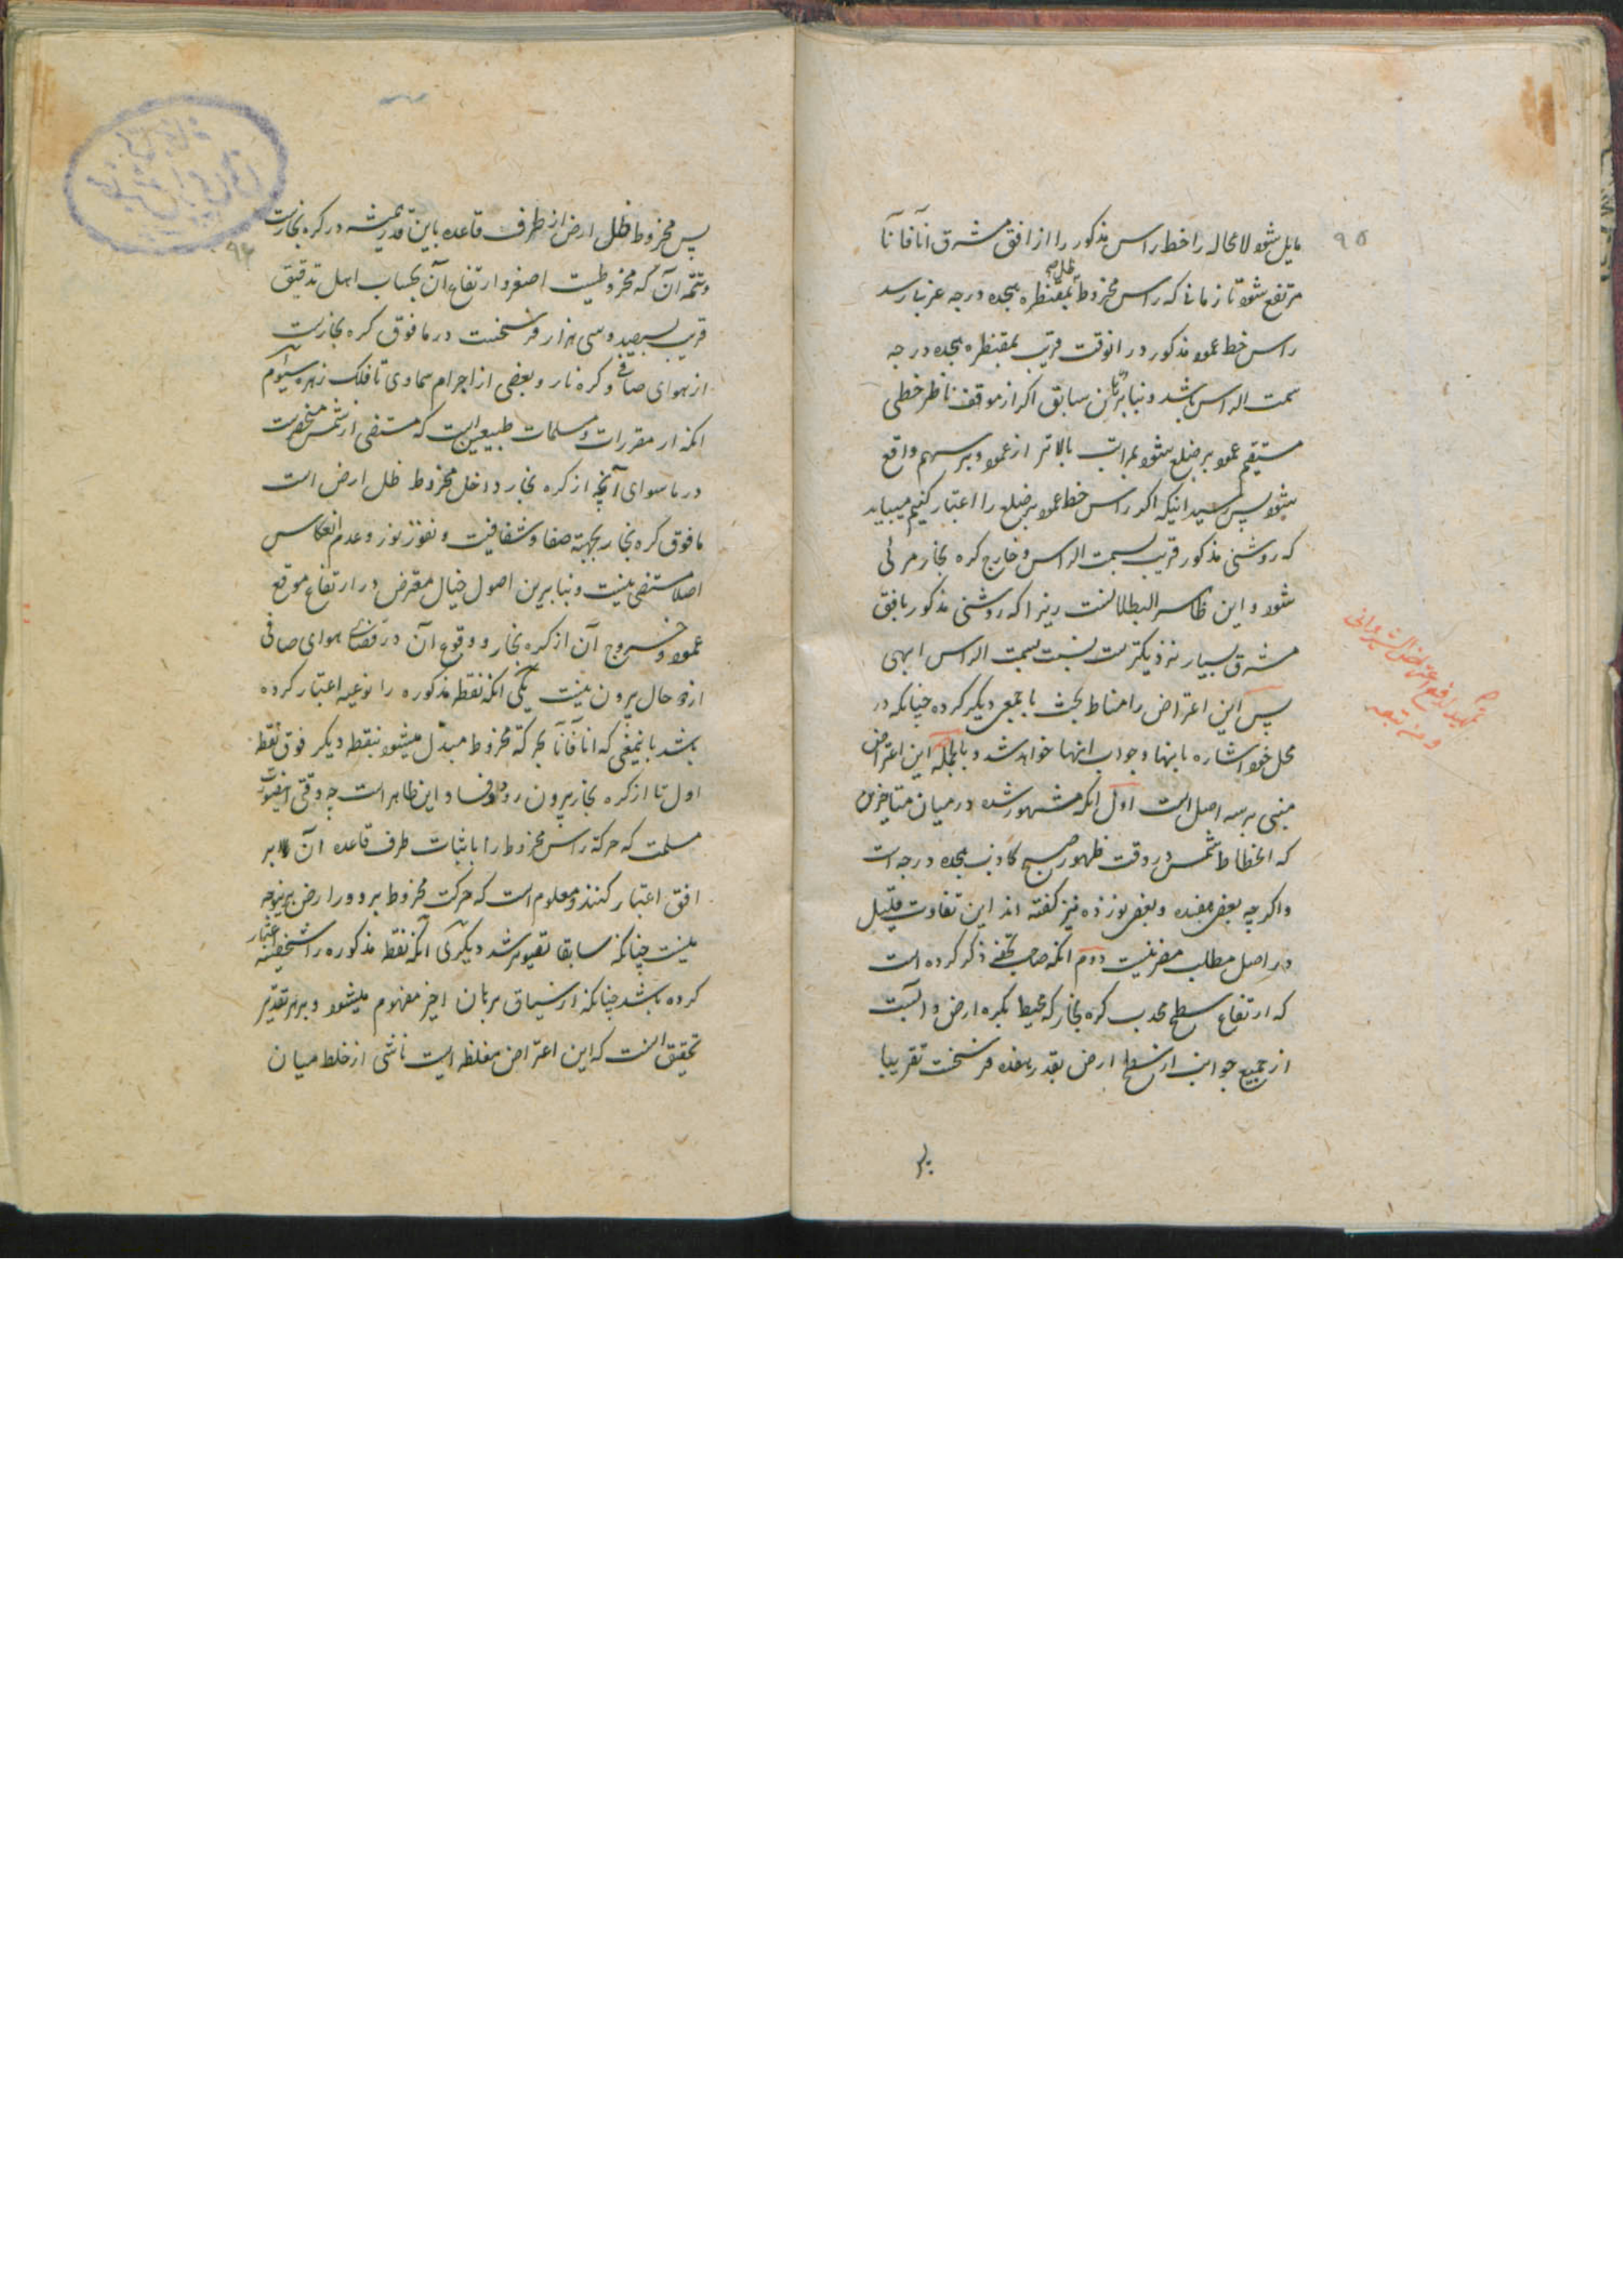 ۹۵
مایل شود لامحاله را خط راس مذکور را از افق مشرق آنا فآنا
مرتفع شود تا زمانی که راس مخروط ظل بمقنطره هجده درجه غربی رسد
راس خط عمود مذکور در انوقت قریب بمقنطره هجده درجه
سمت الراس باشد و بنا بر برهان سابق اگر از موقف ناظر خطی
مستقیم عمود بر ضلع شود بمراتب بالاتر از عمود بر سهم واقع
شود پس رسید انیکه اگر راس خط عمود بر ضلع را اعتبار کنیم میباید
که روشنی مذکور قریب بسمت الراس و خارج کره بخار مرئی
شود و این ظاهر البطلانست زیرا که روشنی مذکور بافق
مشرق بسیار نزدیکترست نسبت بسمت الراس انتهی
پس این اعتراض را مناط بحث با جمعی دیگر کرده چنانکه در
محل خود اشاره بانها و جواب انها خواهد شد و بالجمله این اعتراض
مبنی بر سه اصل است اول انکه مشهور شده در میان متاخرین
که انحطاط شمس در وقت ظهور صبح کاذب هجده درجه است
و اگر چه بعضی هفده و بعضی نوزده نیز گفته اند این تفاوت قلیل
در اصل مطلب مضر نیست دوم انکه صاحب تحفه ذکر کرده است
که ارتفاع سطح محدب کره بخار که محیط بکره ارض و است
از جمیع جوانب از سطح ارض بقدر هفده فرسخست تقریبا
تمهید دفع اعتراض الشیروانی
و من تبعه
۹۶
پس مخروط ظل ارض از طرف قاعده باین قدر همیشه در کره بخارست
و تتمه آن که مخروطیست اصغر و ارتفاع آن بحساب اهل تدقیق
قریب بسیصد و سی هزار فرسخست در مافوق کره بخارست
از هوای صافی و کره نار و بعضی از اجرام سماوی تا فلک زهره سیوم
انکه از مقررات و مسلمات طبیعیین است که مستضی از شمس منحصرست
در ماسوای آنچه از کره بخار داخل مخروط ظل ارض است
مافوق کره بخار بجهة صفا و شفافیت و نفوذ نور و عدم انعکاس
اصلا مستضی نیست و بنا برین اصول خیال معترض در ارتفاع موقع
عمود و خروج آن از کره بخار و وقوع آن در فضای هوای صافی
از دو حال بیرون نیست یکی انکه نقطه مذکوره را نوعیه اعتبار کرده
باشد بانمعنی که آنا فآنا بحرکة مخروط مبدل میشود بنقطه دیگر فوق نقطه
اول تا از کره بخار بیرون رود و فساد این ظاهر است چه وقتی اینصورت
مسلمت که حرکة راس مخروط را با ثبات طرف قاعده آن بر
افق اعتبار کنند و معلوم است که حرکت مخروط بر دور ارض برینوجه
نیست چنانکه سابقا تصویر شد دیگری آنکه نقطه مذکوره را شخصیه اعتبار
کرده باشد چنانکه از سیاق برهان اخیر مفهوم میشود و بر هر تقدیر
تحقیق انست که این اعتراض مغلطه ایست ناشی از خلط میان